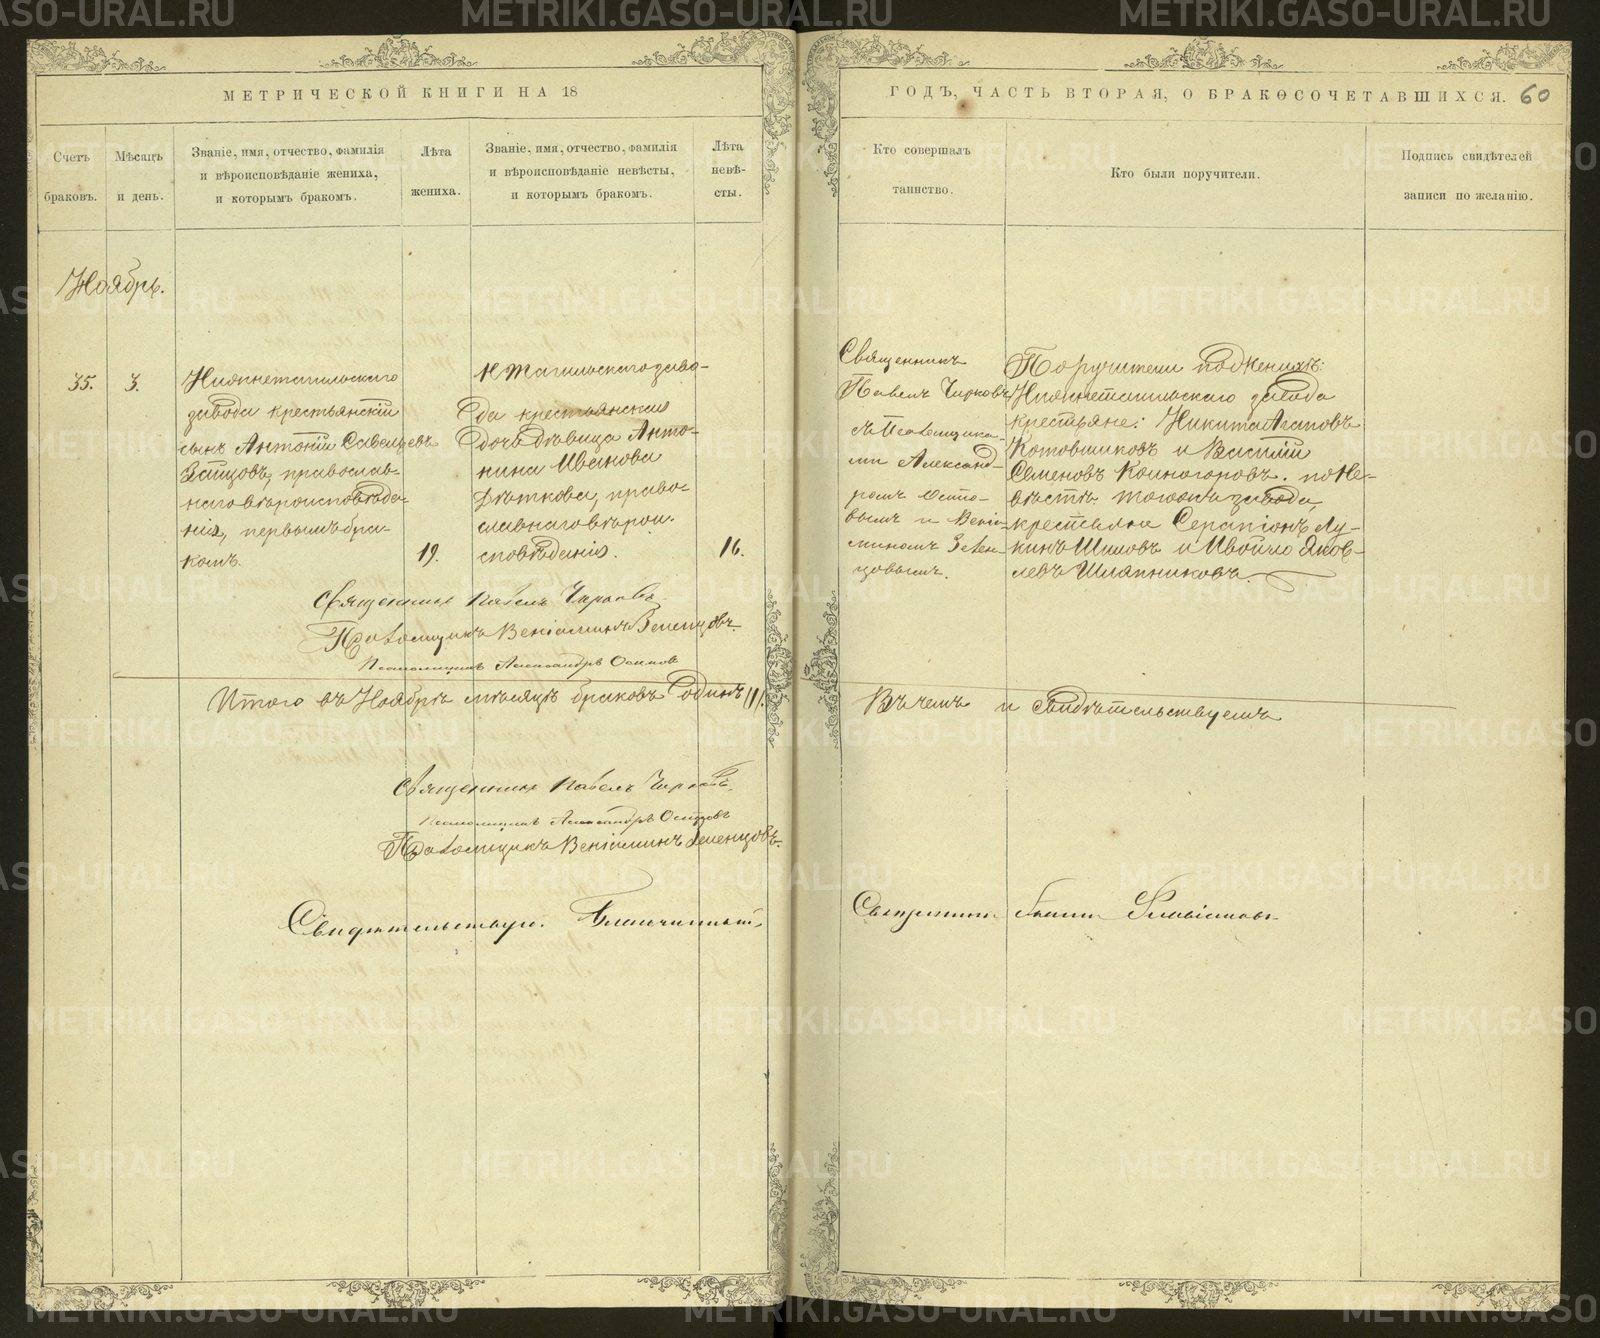 МЕТРИЧЕСКОЙ КНИГИ НА 18
Счетъ браковъ.
Мѣсяцъ и день.
Званіе, имя, отчество, фамилія
и вѣроисповѣданіе жениха,
и которымъ бракомъ.
Лѣта
жениха.
Званіе, имя, отчество, фамилія
и вѣроисповѣданіе невѣсты,
и которымъ бракомъ.
Лѣта
невѣ-
сты.
Ноябрь.
35.
3.
Нижнетагильскаго
завода крестьянскій
сынъ Антоній Савельевъ
Зайцовъ, православ-
наго вѣроисповѣда-
нія, первымъ бра-
комъ.
19.
НТагильскаго заво-
да крестьянская
дочь дѣвица Анто-
нина Иванова
Дѣткова, право-
славнаго вѣрои-
сповѣданія.
16.
Священникъ Павелъ Чирковъ.
Псаломщикъ Веніаминъ Зеленцовъ.
Псаломщикъ Александръ Осиповъ
Итого въ Ноябрѣ мѣсяцѣ браковъ одинъ /1/.
Священникъ Павелъ Чирковъ.
Псаломщикъ Александръ Осиповъ
Псаломщикъ Веніаминъ Зеленцовъ.
Свидѣтельствую. Благочинный,
ГОДЪ, ЧАСТЬ ВТОРАЯ, О БРАКОСОЧЕТАВШИХСЯ. 60
Кто совершалъ
таинство.
Кто были поручители.
Подпись свидѣтелей
записи по желанію.
Священникъ
Павелъ Чирковъ
съ Псаломщика-
ми Александ-
ромъ Осипо-
вымъ и Веніа-
миномъ Зелен-
цовымъ.
Поручители по женихѣ:
Нижнетагильскаго завода
крестьяне: Никита Агаповъ
Котовщиковъ и Василій
Семеновъ Конногоровъ. по не-
вѣстѣ тогожъ завода,
крестьяне Серапіонъ Лу-
кинъ Шиловъ и Ивойло Яков-
левъ Шляпниковъ.
Въ чемъ и свидѣтельствуемъ
Священникъ
METRIKI.GASO-URAL.RU